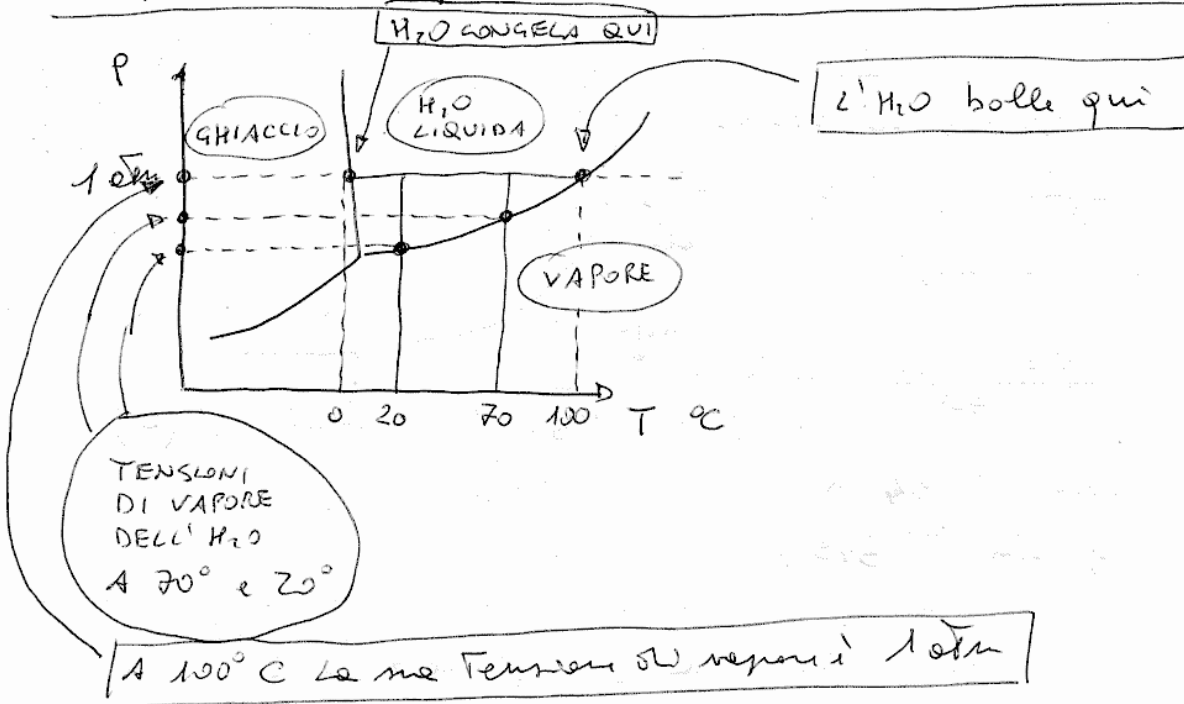 H₂O CONGELA QUI
P
GHIACCIO
H₂O
LIQUIDA
L'H₂O bolle qui
1 atm
VAPORE
0 20 70 100 T °C
TENSIONI
DI VAPORE
DELL'H₂O
A 70° e 20°
A 100°C la sua Tensione di vapore è 1 atm